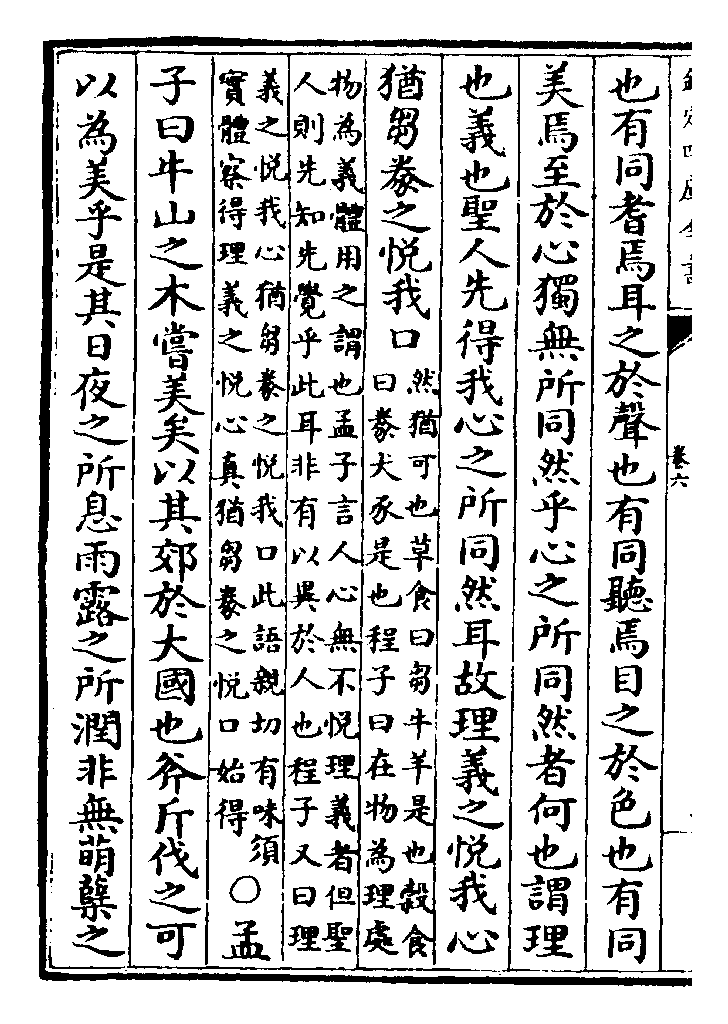 欽定四庫全書
卷六
也有同耆焉耳之於聲也有同聽焉目之於色也有同
美焉至於心獨無所同然乎心之所同然者何也謂理
也義也聖人先得我心之所同然耳故理義之悦我心
猶芻豢之悦我口
然猶可也草食曰芻牛羊是也穀食
曰豢犬豕是也程子曰在物為理處
物為義體用之謂也孟子言人心無不悦理義者但聖
人則先知先覺乎此耳非有以異於人也程子又曰理
義之悦我心猶芻豢之悦我口此語親切有味須
實體察得理義之悦心真猶芻豢之悦口始得
○孟
子曰牛山之木嘗美矣以其郊於大國也斧斤伐之可
以為美乎是其日夜之所息雨露之所潤非無萌蘖之